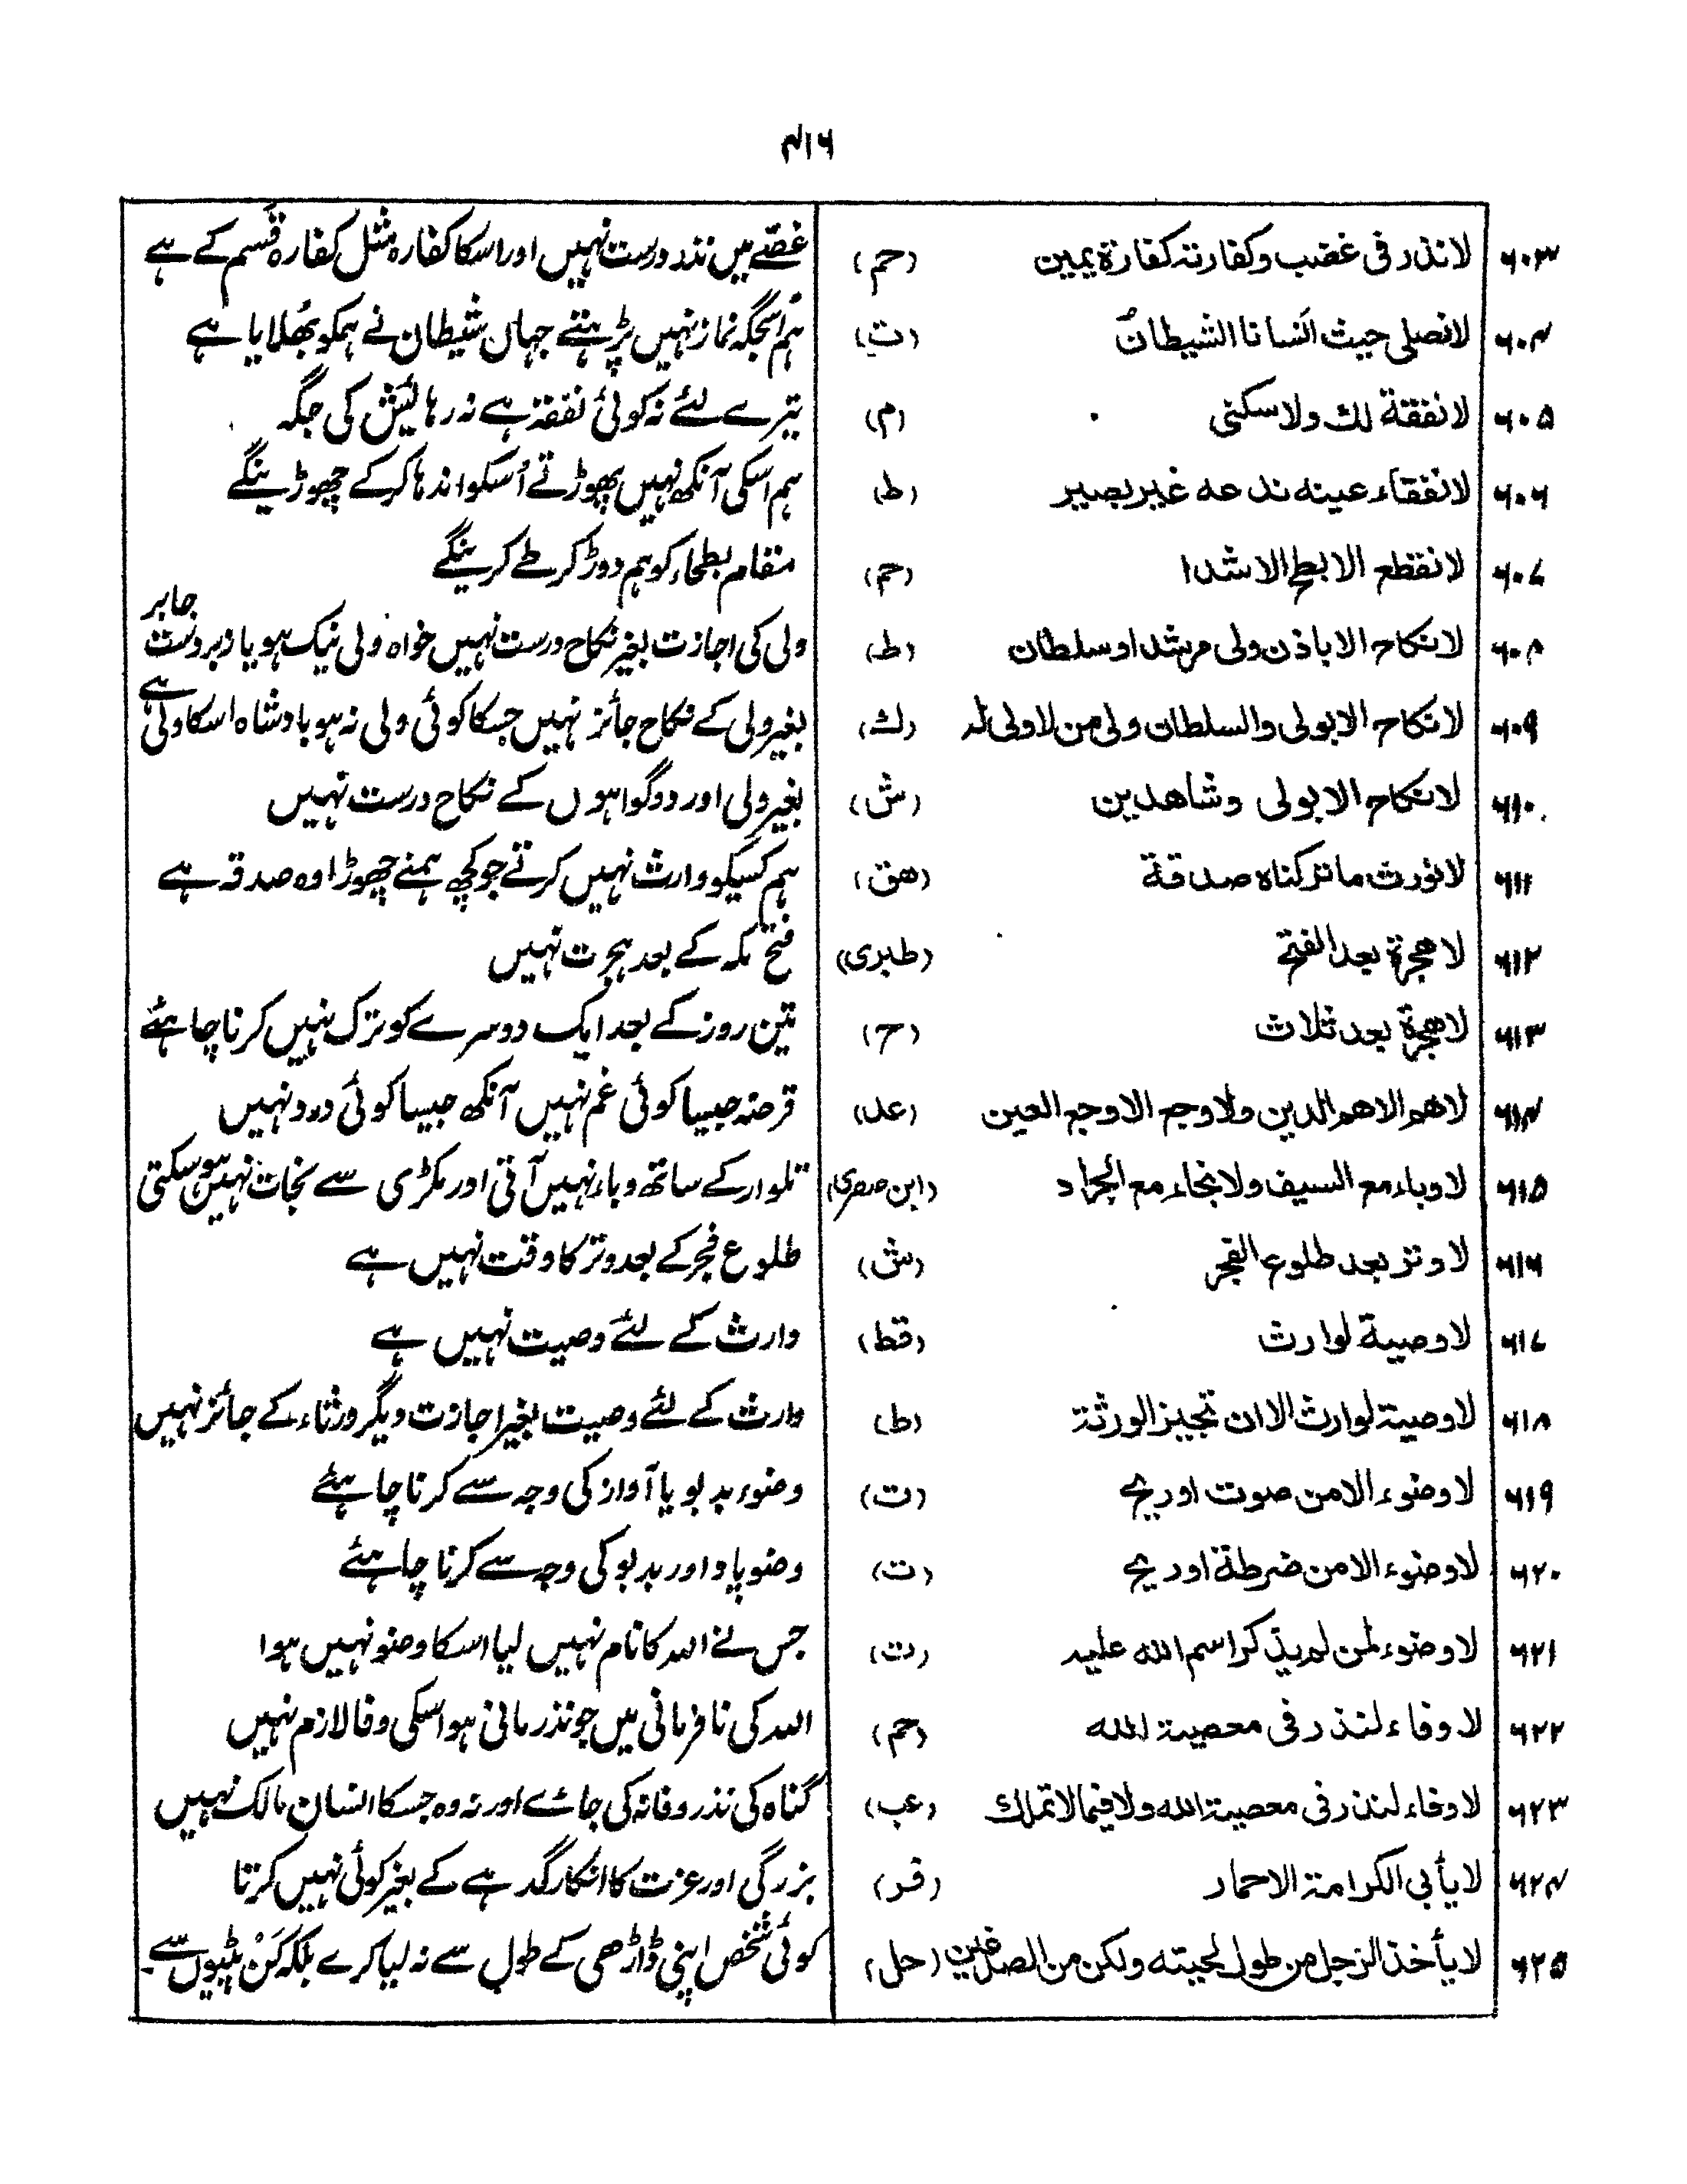 ۴۱۶
۶۰۳ لا نذر فی غضب وکفارتہ کفارۃ یمین (حم) غصّے میں نذر درست نہیں اور اسکا کفارہ مثل کفارہ قسم کے ہے
۶۰۴ لا نصلی حیث انسانا الشیطان (ت) ہم اُسجگہ نماز نہیں پڑہتے جہاں شیطان نے ہمکو بھُلایا ہے
۶۰۵ لا نفقة لك ولا سكنی (م) تیرے لئے نہ کوئی نفقہ ہے نہ رہائیش کی جگہ
۶۰۶ لا نفقاء عینہ ندعہ غیر بصیر (ط) ہم اسکی آنکھ نہیں پھوڑتے اُسکو اندہا کرکے چھوڑینگے
۶۰۷ لا نقطع الابطح الا شدا (حم) مقام بطحاء کو ہم دوڑ کر طے کرینگے
۶۰۸ لا نکاح الا باذن ولی مرشد او سلطان (ط) ولی کی اجازت بغیر نکاح درست نہیں خواہ ولی نیک ہو یا زبردست جابر
۶۰۹ لا نکاح الا بولی والسلطان ولی من لا ولی لہ (ك) بغیر ولی کے نکاح جائز نہیں جسکا کوئی ولی نہ ہو بادشاہ اسکا ولی ہے
۶۱۰ لا نکاح الا بولی وشاهدین (ش) بغیر ولی اور دو گواہوں کے نکاح درست نہیں
۶۱۱ لا نورث ما ترکناہ صدقة (هق) ہم کسیکو وارث نہیں کرتے جو کچھ ہمنے چھوڑا وہ صدقہ ہے
۶۱۲ لا هجرة بعد الفتح (طبری) فتح مکہ کے بعد ہجرت نہیں
۶۱۳ لا هجرة بعد ثلاث (ح) تین روز کے بعد ایک دوسرے کو ترک نہیں کرنا چاہئے
۶۱۴ لا هم الا هم الدین ولا وجع الا وجع العین (عد) قرضہ جیسا کوئی غم نہیں آنکھ جیسا کوئی درد نہیں
۶۱۵ لا وباء مع السیف ولا نجاء مع الجراد (ابن صصری) تلوار کے ساتھ وباء نہیں آتی اور مکڑی سے نجات نہیں ہوسکتی
۶۱۶ لا وتر بعد طلوع الفجر (ش) طلوع فجر کے بعد وتر کا وقت نہیں ہے
۶۱۷ لا وصیة لوارث (قط) وارث کے لئے وصیت نہیں ہے
۶۱۸ لا وصیة لوارث الا ان تجیز الورثة (ط) وارث کے لئے وصیت بغیر اجازت دیگر ورثاء کے جائز نہیں
۶۱۹ لا وضوء الا من صوت او ریح (ت) وضوء بدبو یا آواز کی وجہ سے کرنا چاہئے
۶۲۰ لا وضوء الا من ضرطة او ریح (ت) وضو پاد اور بدبو کی وجہ سے کرنا چاہئے
۶۲۱ لا وضوء لمن لم یذکر اسم اللہ علیہ (ت) جس نے اللہ کا نام نہیں لیا اسکا وضو نہیں ہوا
۶۲۲ لا وفاء لنذر فی معصیة اللہ (حم) اللہ کی نافرمانی میں جو نذر مانی ہو اسکی وفا لازم نہیں
۶۲۳ لا وفاء لنذر فی معصیة اللہ ولا فیما لا تملك (عب) گناہ کی نذر وفا نہ کی جائے اور نہ وہ جسکا انسان مالک نہیں
۶۲۴ لا یأبی الکرامة الا حمار (فر) بزرگی اور عزت کا انکار گدہے کے بغیر کوئی نہیں کرتا
۶۲۵ لا یأخذ الرجل من طول لحیته ولکن من الصدغین (حل) کوئی شخص اپنی ڈاڑھی کے طول سے نہ لیا کرے بلکہ کن پٹیوں سے۔